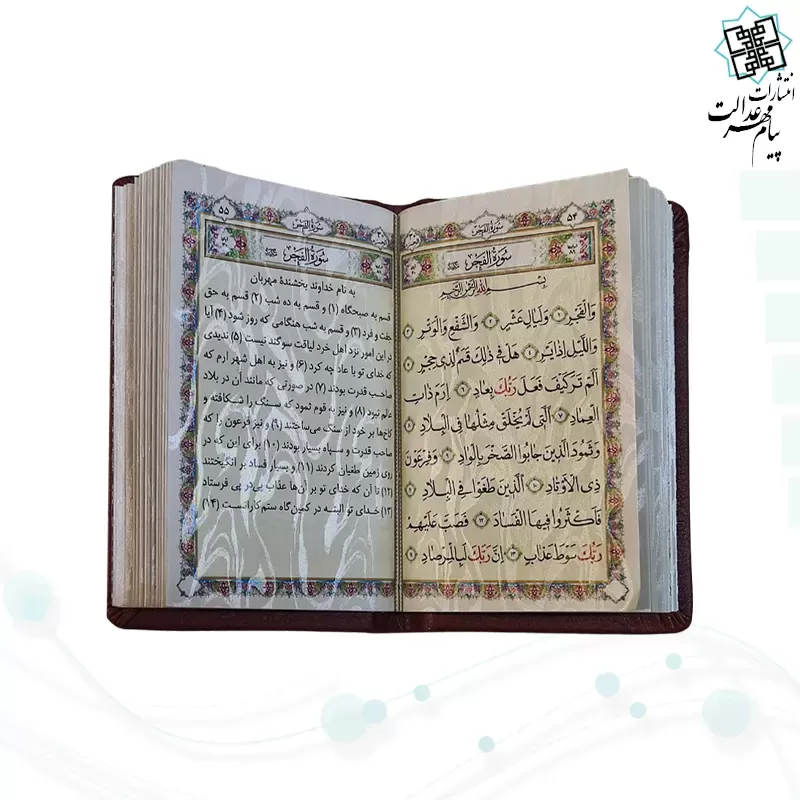 انتشارات
پیام مهر عدالت
۵۴
سورة الفجر
سُورَةُ الفَجْر
بِسْمِ اللهِ الرَّحْمٰنِ الرَّحیمِ
وَالْفَجْرِ ۱ وَلَیَالٍ عَشْرٍ ۲ وَالشَّفْعِ وَالْوَتْرِ ۳
وَاللَّیْلِ اِذَا یَسْرِ ۴ هَلْ فی ذٰلِکَ قَسَمٌ لِذی حِجْرٍ ۵
اَلَمْ تَرَ کَیْفَ فَعَلَ رَبُّکَ بِعَادٍ ۶ اِرَمَ ذَاتِ
الْعِمَادِ ۷ اَلَّتی لَمْ یُخْلَقْ مِثْلُهَا فِی الْبِلَادِ ۸
وَثَمُودَ الَّذینَ جَابُوا الصَّخْرَ بِالْوَادِ ۹ وَفِرْعَوْنَ
ذِی الْاَوْتَادِ ۱۰ اَلَّذینَ طَغَوْا فِی الْبِلَادِ ۱۱
فَاَکْثَرُوا فیهَا الْفَسَادَ ۱۲ فَصَبَّ عَلَیْهِمْ
رَبُّکَ سَوْطَ عَذَابٍ ۱۳ اِنَّ رَبَّکَ لَبِالْمِرْصَادِ ۱۴
۵۵
سورة الفجر
سُورَةُ الفَجْر
به نام خداوند بخشندهٔ مهربان
قسم به صبحگاه (۱) و قسم به ده شب (۲) قسم به حق
جفت و فرد (۳) و قسم به شب هنگامی که روز شود (۴) آیا
در این امور نزد اهل خرد لیاقت سوگند نیست (۵) ندیدی
که خدای تو با عاد چه کرد (۶) و نیز به اهل شهر ارم که
صاحب قدرت بودند (۷) در صورتی که مانند آن در بلاد
عالم نبود (۸) و نیز به قوم ثمود که سنگ را شکافته و
کاخ‌ها بر خود از سنگ می‌ساختند (۹) و نیز فرعون را که
صاحب قدرت و سپاه بسیار بودند (۱۰) برای این که در
روی زمین طغیان کردند (۱۱) و بسیار فساد بر انگیختند
(۱۲) تا آن که خدای تو بر آن‌ها عذاب پی در پی فرستاد
(۱۳) خدای تو البته در کمین‌گاه ستم‌کارانست (۱۴)